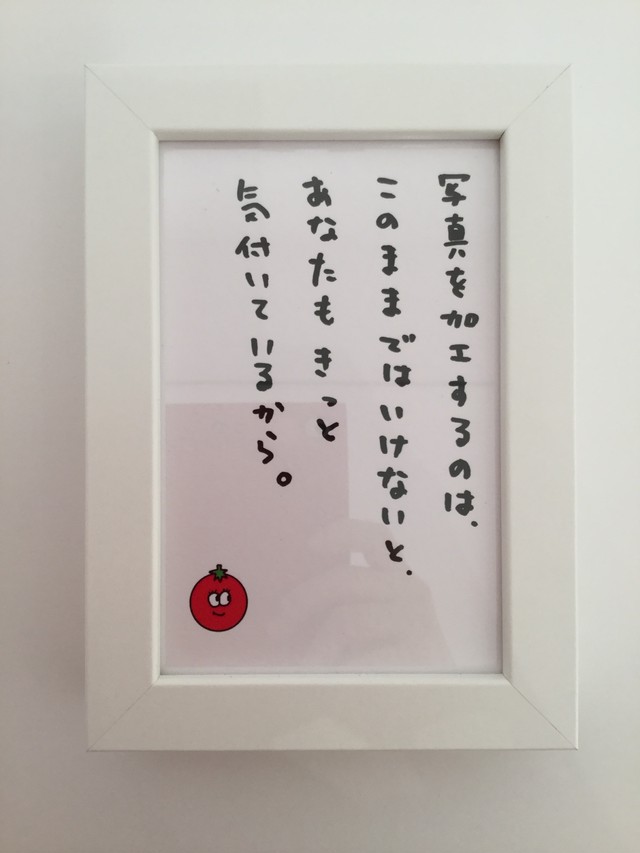 写真を加工するのは、
このままではいけないと、
あなたもきっと
気付いているから。